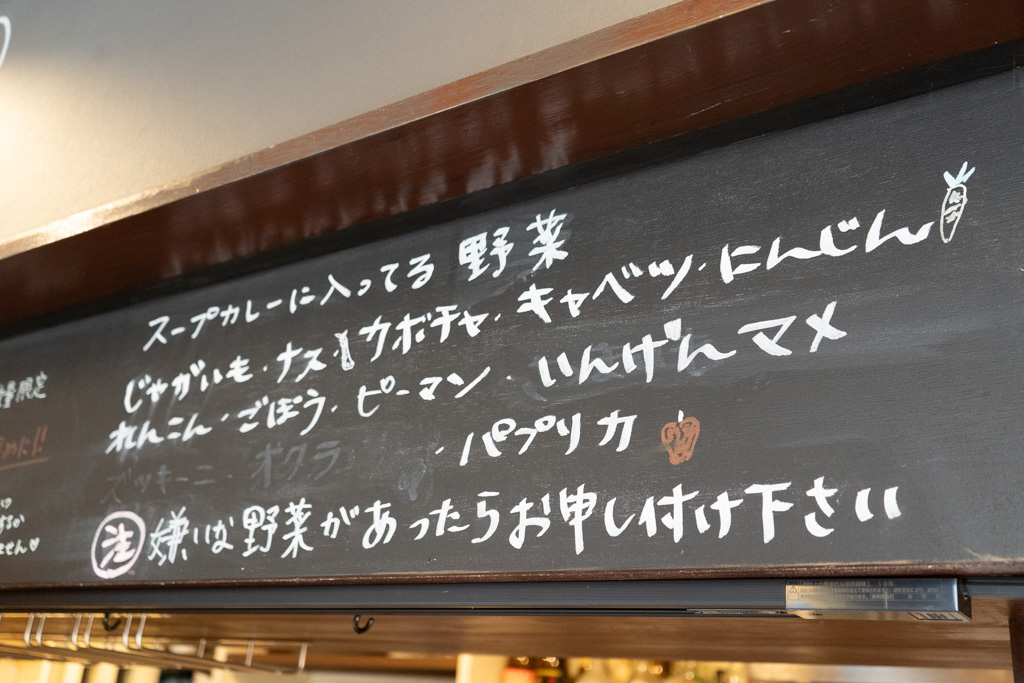 スープカレーに入ってる野菜
じゃがいも・ナス・カボチャ・キャベツ・にんじん
れんこん・ごぼう・ピーマン・いんげんマメ
ズッキーニ・オクラ・パプリカ
注 嫌いな野菜があったらお申し付け下さい
限定